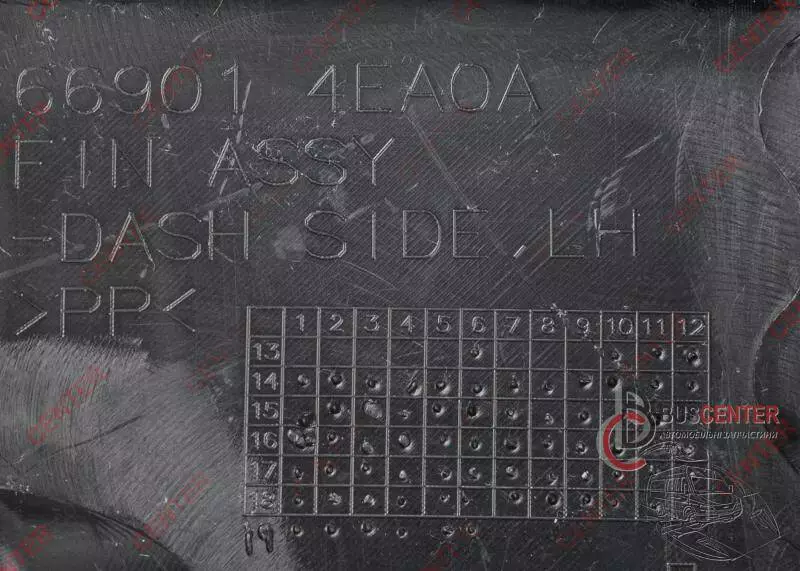 66901 4EA0A
FIN ASSY
-DASH SIDE,LH
>PP<
1 2 3 4 5 6 7 8 9 10 11 12
13
14
15
16
17
18
19
BUSCENTER
АВТОМОБІЛЬНІ ЗАПЧАСТИНИ
CENTER